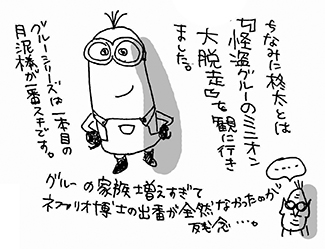 ちなみに柊太とは
「怪盗グルーのミニオン
大脱走」を観に行き
ました。
グルーシリーズは一本目の
月泥棒が一番スキです。
グルーの家族増えすぎて
ネファリオ博士の出番が全然なかったのが
残念…。
……